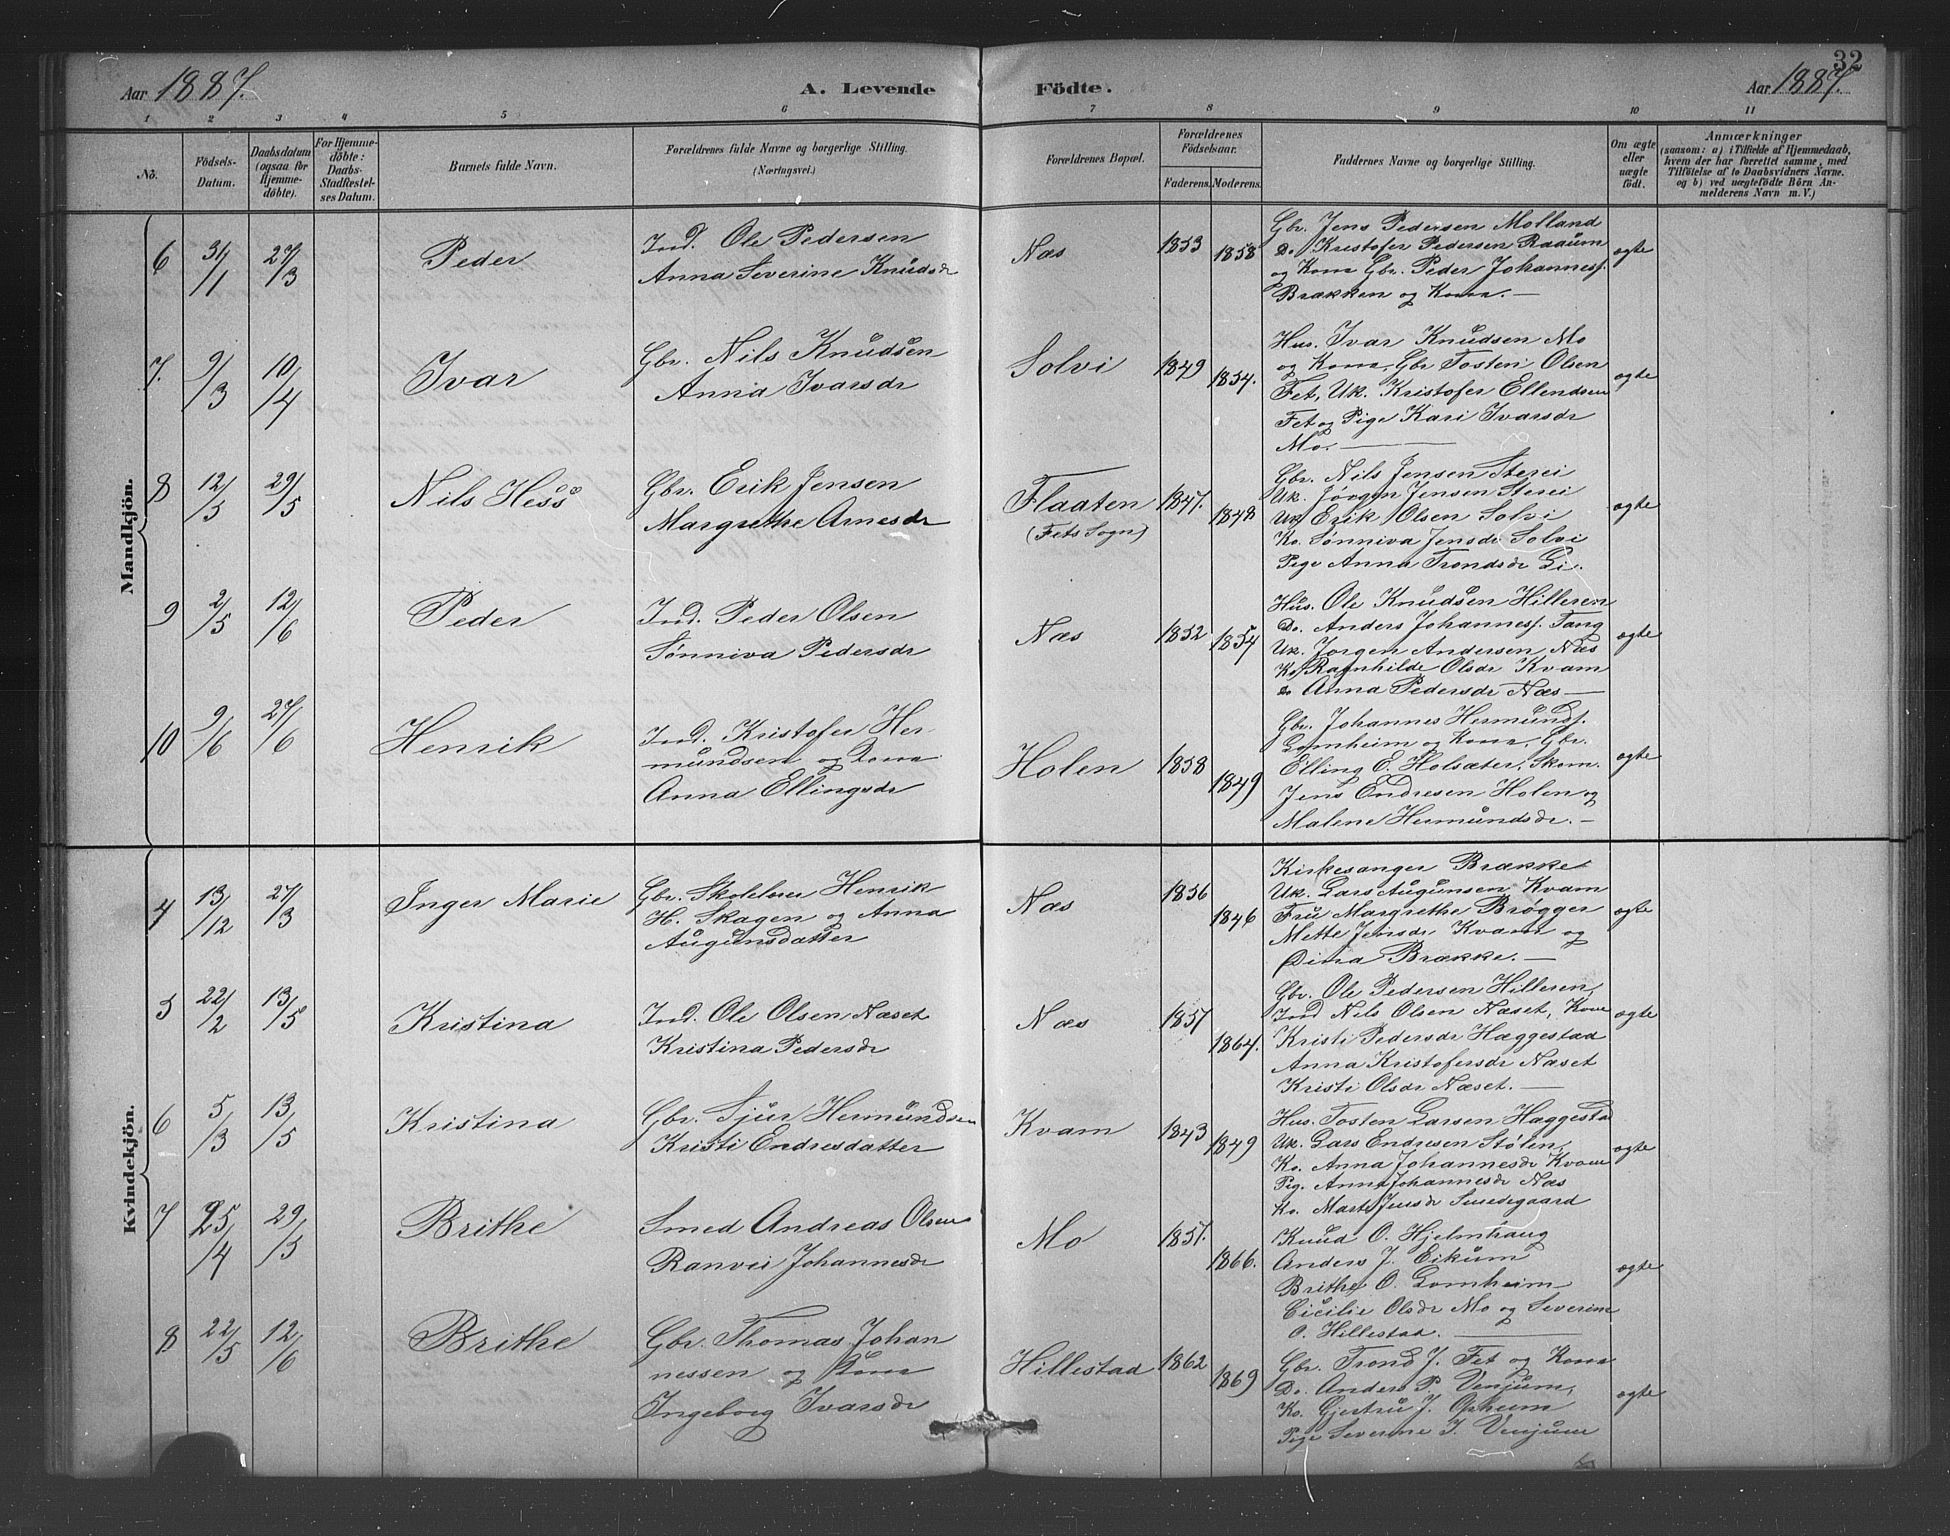 32
Aar 1887. A. Levende Födte. Aar 1887.
1 2 3 4 5 6 7 8 9 10 11
No.
Födsels-
Datum.
Daabsdatum
(ogsaa for
Hjemme-
döbte).
For Hjemme-
döbte:
Daabs-
Stadfæstel-
ses Datum.
Barnets fulde Navn.
Forældrenes fulde Navne og borgerlige Stilling.
(Næringsvei.)
Forældrenes Bopæl.
Forældrenes
Födselsaar.
Faderens. Moderens.
Faddernes Navne og borgerlige Stilling.
Om ægte
eller
uægte
födt.
Anmærkninger
(saasom: a) i Tilfælde af Hjemmedaab,
hvem der har forrettet samme, med
Tilföielse af to Daabsvidners Navne.
og b) ved uægtefödte Börn An-
melderens Navn m. V.)
Mandkjön.
6 31/1 27/3 Peder
Ind. Ole Pedersen
Anna Severine Knudsdr
Næs 1853 1858
Gbr. Jens Pedersen Molland
Do. Kristofer Pedersen Raaum
og Kona Gbr. Peder Johannesf.
Brækken og Kona. —
ægte
7. 9/3 10/4 Ivar
Gbr. Nils Knudsen
Anna Ivarsdr
Solvi 1849 1854.
Hus. Ivar Knudsen Mo
og Kona, Gbr Tosten Olsen
Fet, Uk. Kristofer Ellendsen
Fet og Pige Kari Ivarsdr
Mo. —
ægte
8 12/5 29/5 Nils Hess
Gbr. Erik Jensen
Margrethe Arnesdr
Flaaten
(Fets Sogn)
1847. 1848
Gbr. Nils Jensen Sterei
Uk. Jørgen Jensen Sterei
Uk Erik Olsen Solvi
Ko. Sønniva Jensdr Solvi
Pige Anna Trondsdr Li.
ægte
9 2/5 12/6 Peder
Ind. Peder Olsen
Sønniva Pedersdr
Næs 1852 1854
Hus. Ole Knudsen Hilleren
Do. Anders Johannesf. Tang
Uk. Jørgen Andersen Næs
Ko Ragnhilde Olsdr Kvam
Do Anna Pedersdr Næs —
ægte
10 9/6 27/6 Henrik
Ind. Kristofer Her-
mundsen og Kona
Anna Ellingsdr
Holen 1858 1849
Gbr. Johannes Hermundf.
Lomheim og Kona, Gbr.
Elling E. Holsæter, Skom.
Jens Endresen Holen og
Malene Hermundsdr. —
ægte
Kvindekjön.
4 13/12 27/3 Inger Marie
Gbr. Skolelærer Henrik
H. Skagen og Anna
Augunsdatter
Næs 1856 1846
Kirkesanger Brække
Uk. Lars Augunsen Kvam
Fru Margrethe Brøgger
Mette Jensdr Kvam og
Dina Brække. —
ægte
5 22/2 13/5 Kristina
Ind. Ole Olsen Næset
Kristina Pedersdr
Næs 1857 1864.
Gbr. Ole Pedersen Hilleren,
Ind Nils Olsen Næset, Kone
Kristi Pedersdr Hæggestad
Anna Kristofersdr Næset
Kristi Olsdr Næset. —
ægte
6 5/3 13/5 Kristina
Gbr. Sjur Hermundsen
Kristi Endresdatter
Kvam 1843 1849
Hus. Tosten Larsen Haggestad
Uk. Lars Endresen Stølen,
Ko. Anna Johannesdr Kvam
Pig. Anna Johannesdr Næs
Ko. Marta Jensdr Smedegaard
ægte
7 25/4 29/5 Brithe
Smed Andreas Olsen
Ranvei Johannesdr
Mo 1857. 1866.
Knud O. Hjelmhaug
Anders J. Eikum
Brithe O. Lomheim
Cicilie Olsdr Mo og Severine
O. Hillestad. —
ægte
8 22/5 12/6 Brithe
Gbr. Thomas Johan
nessen og Kona
Ingeborg Ivarsdr
Hillestad 1862 1869
Gbr. Trond J. Fet og Kona
Do. Anders P. Venjum,
Ko. Gjertru J. Opheim
Pige Severine I. Venjum
ægte